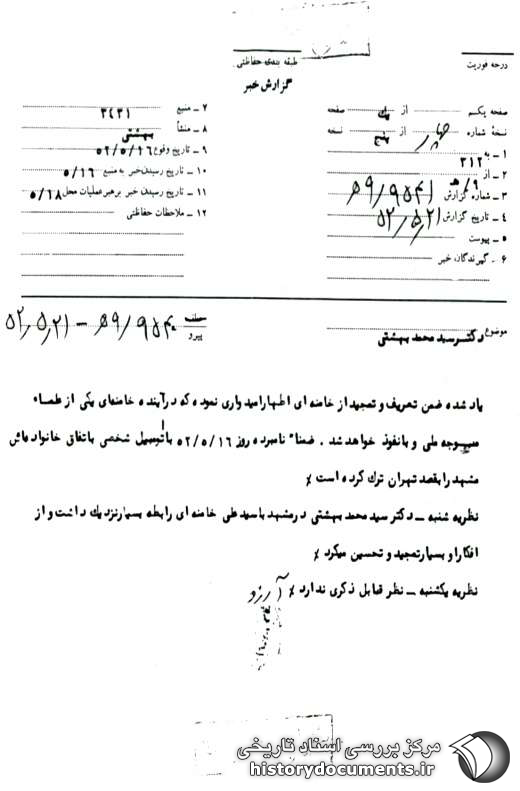 درجه فوریت
طبقه بندی حفاظتی
گزارش خبر
صفحه یکم از یک صفحه
نسخهٔ شماره چهار از پنج نسخه
۱ - به ۳۱۲
۲ - از ۹ / ه
۳ - شماره گزارش
۴ - تاریخ گزارش ۵۲/۵/۲۱
۵ - پیوست
۶ - گیرندگان خبر
۷ - منبع ۳۴۳۱
۸ - منشأ بهشتی
۹ - تاریخ وقوع ۵۲/۵/۱۶
۱۰ - تاریخ رسیدن خبر به منبع ۵/۱۶
۱۱ - تاریخ رسیدن خبر برهبر عملیات محل ۵/۱۸
۱۲ - ملاحظات حفاظتی
موضوع دکتر سید محمد بهشتی
پیرو
۵۲/۵/۲۱
یاد شده ضمن تعریف و تمجید از خامنه ای اظهار امیدواری نموده که در آینده خامنه‌ای یکی از علماء
موجه ملی و بانفوذ خواهد شد . ضمناً نامبرده روز ۵۲/۵/۱۶ با اتومبیل شخصی باتفاق خانواده‌اش
مشهد را بقصد تهران ترک کرده است ٪
نظریه شنبه – دکتر سید محمد بهشتی در مشهد با سید علی خامنه ای رابطه بسیار نزدیک داشت و از
افکار او بسیار تمجید و تحسین میکرد ٪
نظریه یکشنبه – نظر قابل ذکری ندارد ٪ آرزو
مرکز بررسی اسناد تاریخی
historydocuments.ir